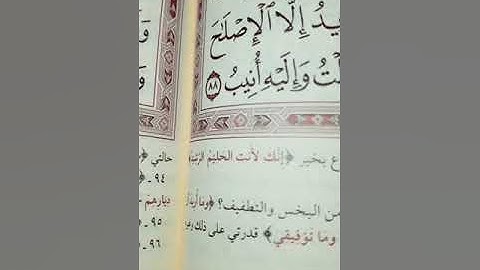 يدُ إِلَّا ٱلْإِصْلَٰحَ
وَإِلَيْهِ أُنِيبُ ٨٨
ع بخير ﴿إنك لأنت الحليم
من البخس والتطفيف؟ ﴿وما أريد
وما توفيقي﴾ قدرتي على ذلك
حالتي
٩٤ -
ديارهم -
٩٥ -
٩٦ -